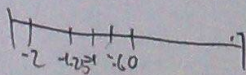 -2 -1.25 -1 -.6 0 .7